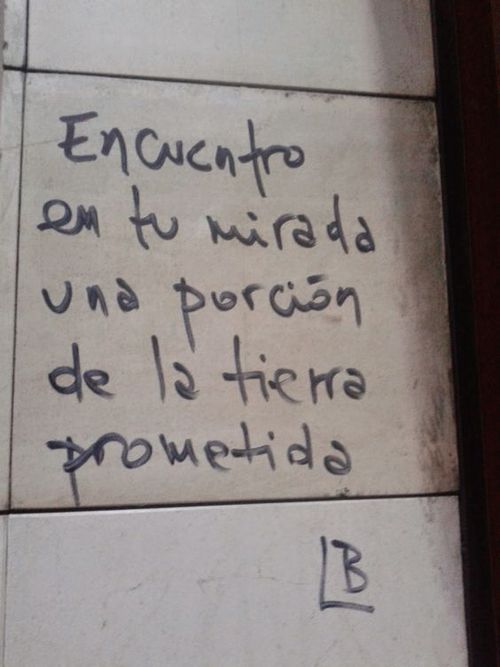 Encuentro
en tu mirada
una porción
de la tierra
prometida
LB